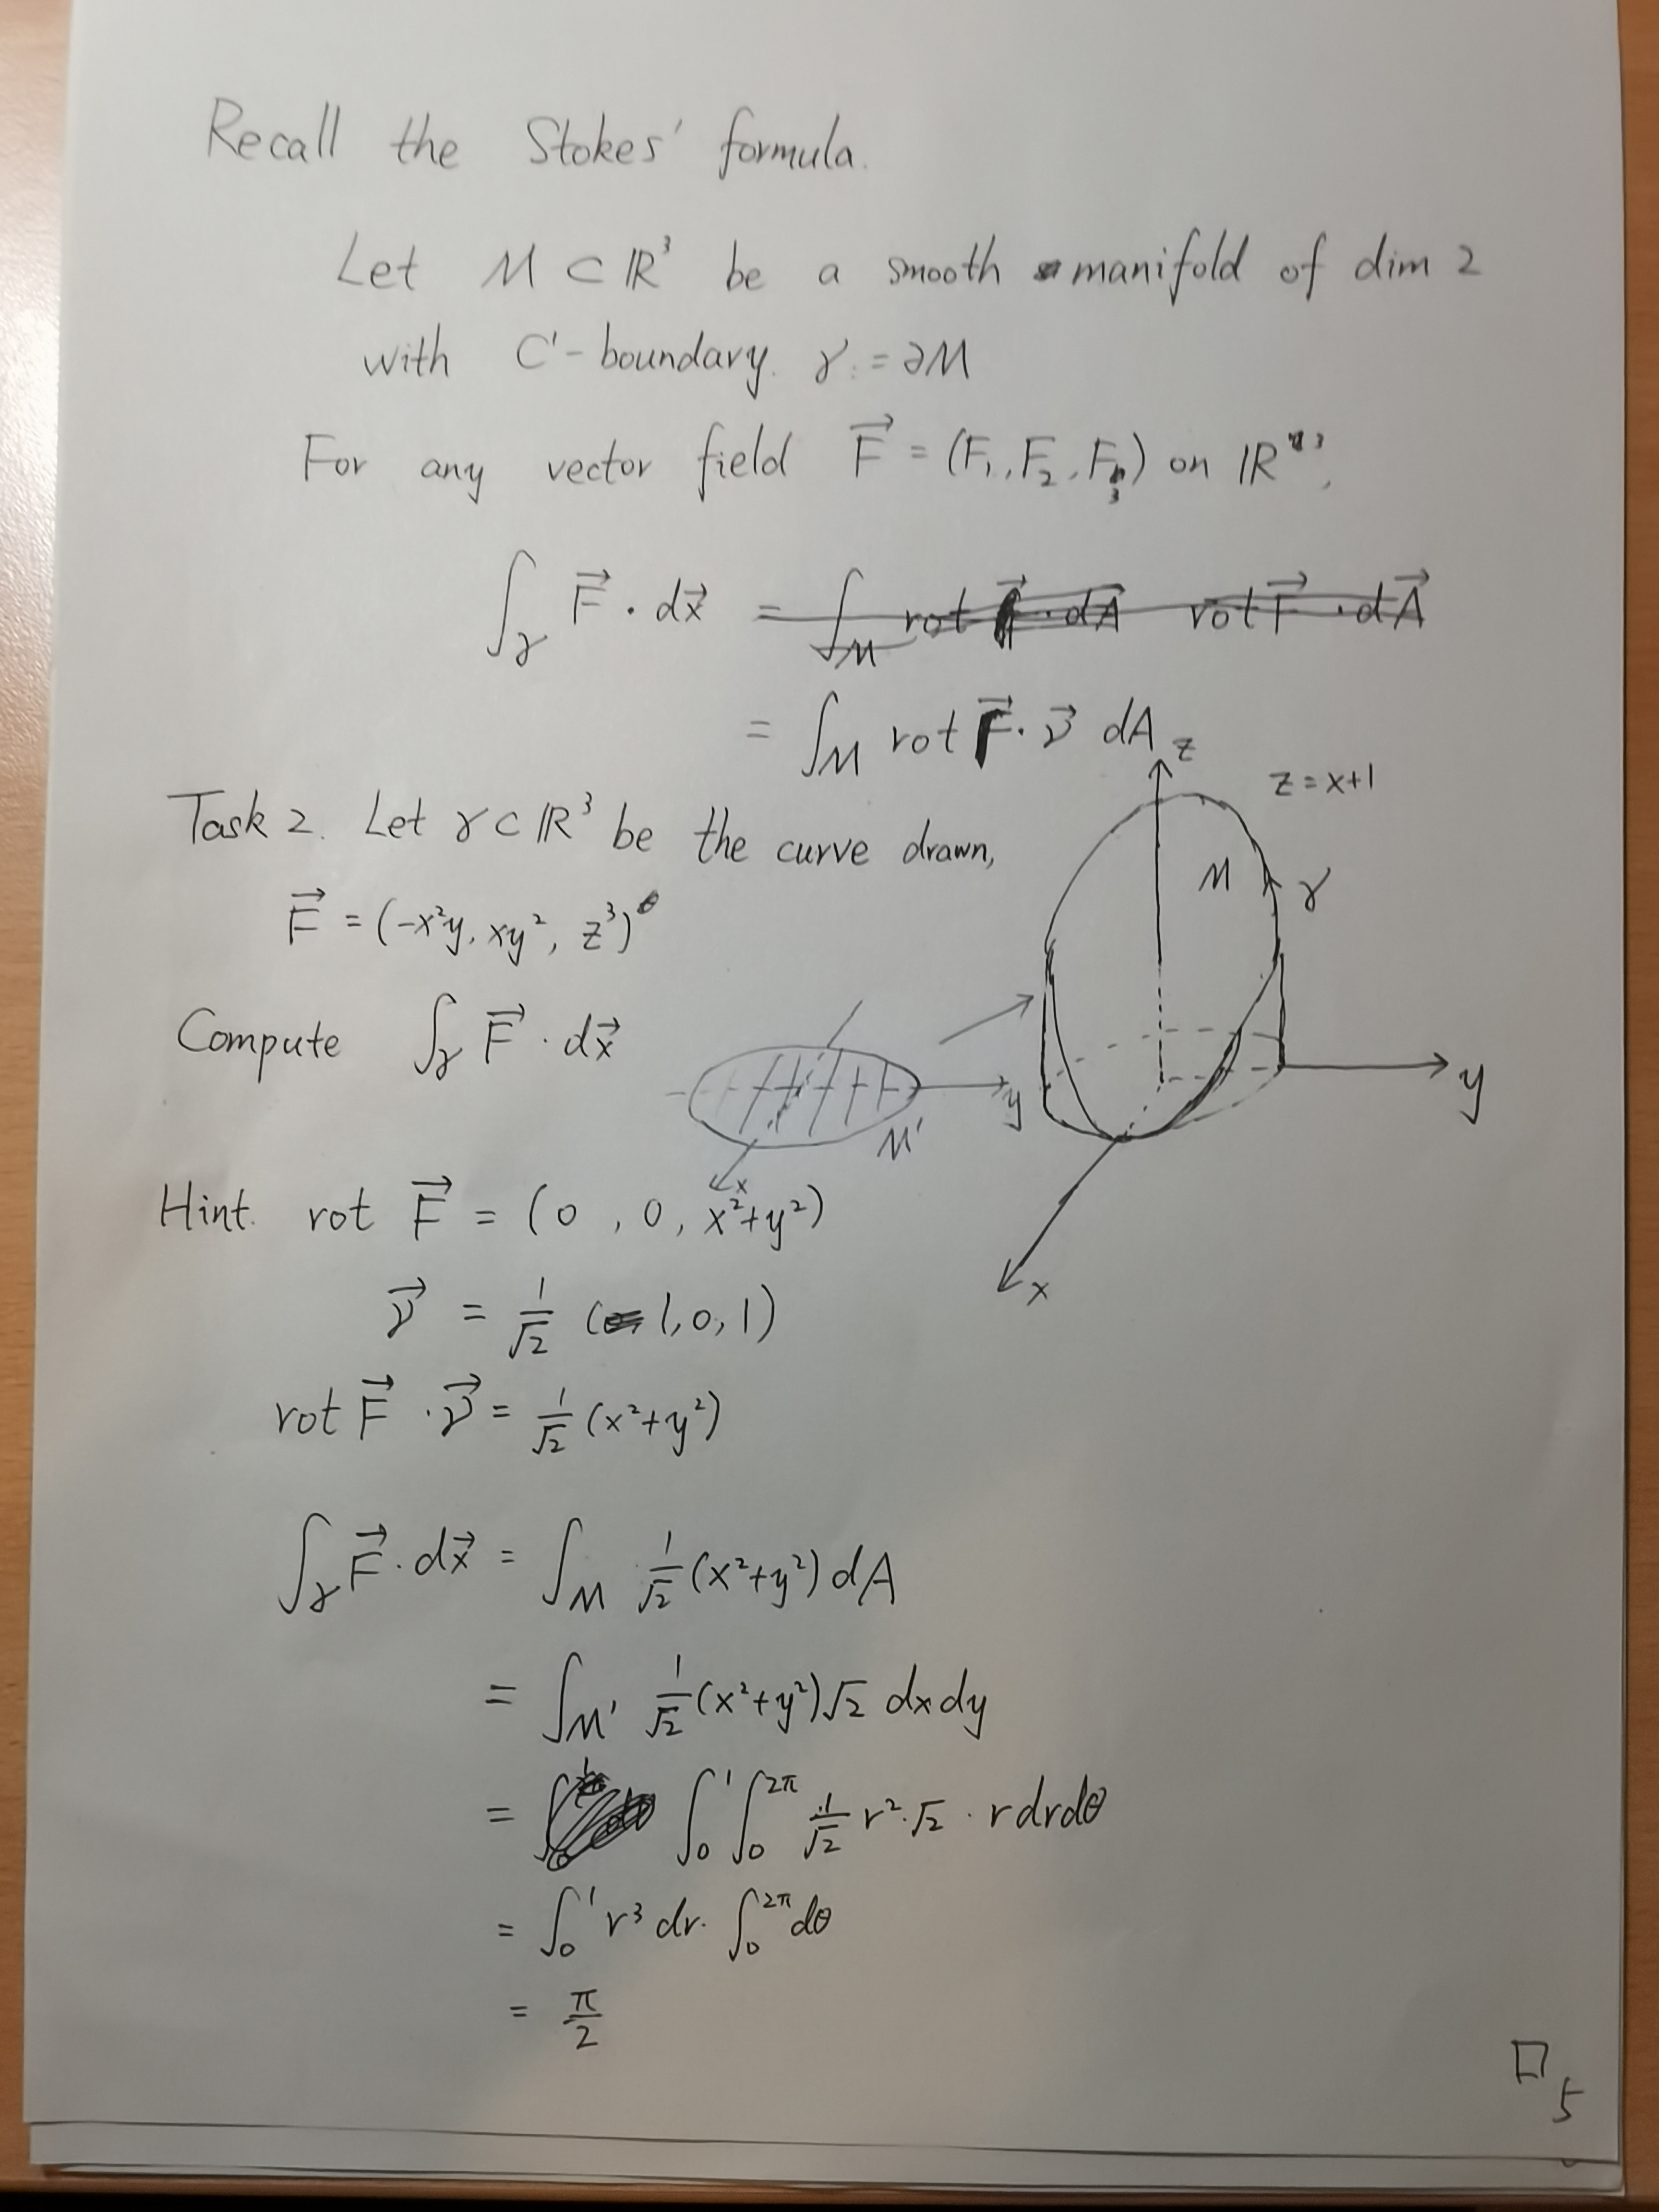 Recall the Stokes' formula.
Let M ⊂ ℝ³ be a smooth manifold of dim 2
with C¹-boundary. γ := ∂M
For any vector field F⃗ = (F₁, F₂, F₃) on ℝ³,
∫_γ F⃗ · dx⃗ = ∫_M rot F⃗ · dA⃗ rot F⃗ · dA⃗
= ∫_M rot F⃗ · ν⃗ dA
z
z = x+1
Task 2. Let γ ⊂ ℝ³ be the curve drawn,
M γ
F⃗ = (-x²y, xy², z³)
Compute ∫_γ F⃗ · dx⃗
y
y
M'
x
x
Hint. rot F⃗ = (0, 0, x²+y²)
ν⃗ = 1/√2 (1, 0, 1)
rot F⃗ · ν⃗ = 1/√2 (x²+y²)
∫_γ F⃗ · dx⃗ = ∫_M 1/√2 (x²+y²) dA
= ∫_M' 1/√2 (x²+y²) √2 dx dy
= ∫₀¹ ∫₀^2π 1/√2 r² · √2 · r dr dθ
= ∫₀¹ r³ dr · ∫₀^2π dθ
= π/2
□
5